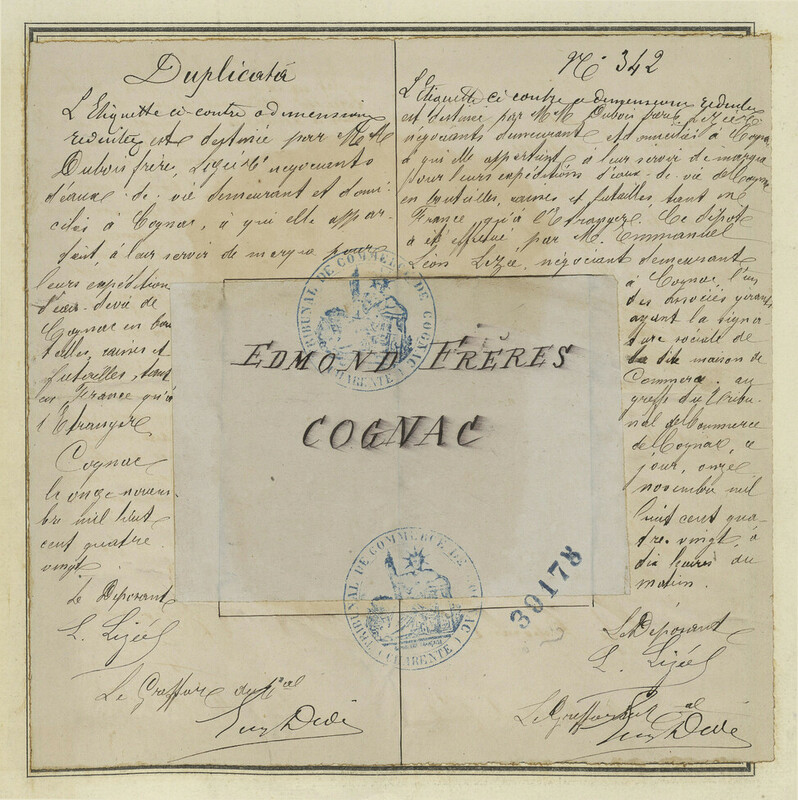 Duplicata
L'Etiquette ci-contre a dimensions
reduites est destinée par MM
Dubois frère, Lizée & Cie négociants
d'eaux-de-vie demeurant et domi-
ciliés à Cognac, à qui elle appar-
tient, à leur servir de marque pour
leurs expéditions
d'eau-de-vie de
Cognac en bou
teilles, caisses et
futailles, tant
en France qu'à
l'Etranger
Cognac
le onze novem-
bre mil huit
cent quatre
vingt
Le Déposant
L. Lizée
Le Greffier du Cal
No 342
L'étiquette ci contre a dimensions reduites
est destinée par MM. Dubois frère Lizée & Cie
négociants demeurant et domiciliés à Cognac
à qui elle appartient, à leur servir de marque
pour leurs expéditions d'eaux-de-vie de Cognac
en bouteilles, caisses et futailles, tant en
France qu'à l'Etranger. Ce dépôt
a été effectué par M. Emmanuel
Léon Lizée, négociant demeurant
à Cognac l'un
des associés gérants
ayant la signa-
ture sociale de
la dite maison de
Commerce, au
greffe du Tribu-
nal de Commerce
de Cognac, ce
jour, onze
novembre mil
huit cent qua-
tre-vingt, à
dix heures du
matin.
Le Déposant
L. Lizée
Le Greffier
EDMOND FRÈRES
COGNAC
TRIBUNAL DE COMMERCE DE COGNAC (CHARENTE)
TRIBUNAL DE COMMERCE DE COGNAC (CHARENTE)
30178